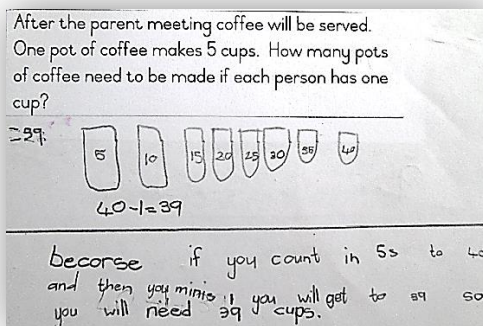 After the parent meeting coffee will be served.
One pot of coffee makes 5 cups. How many pots
of coffee need to be made if each person has one
cup?
=39.
5 10 15 20 25 30 35 40
40-1=39
becorse if you count in 5s to 40
and then you minis 1 you will get to 39 so
you will need 39 cups.